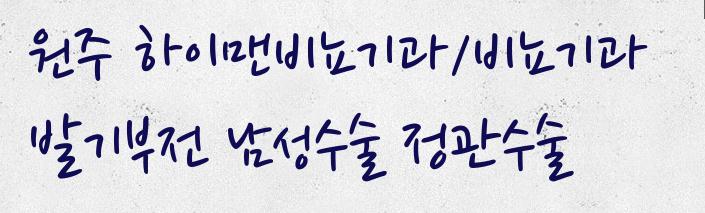 원주 하이맨비뇨기과/비뇨기과
발기부전 남성수술 정관수술